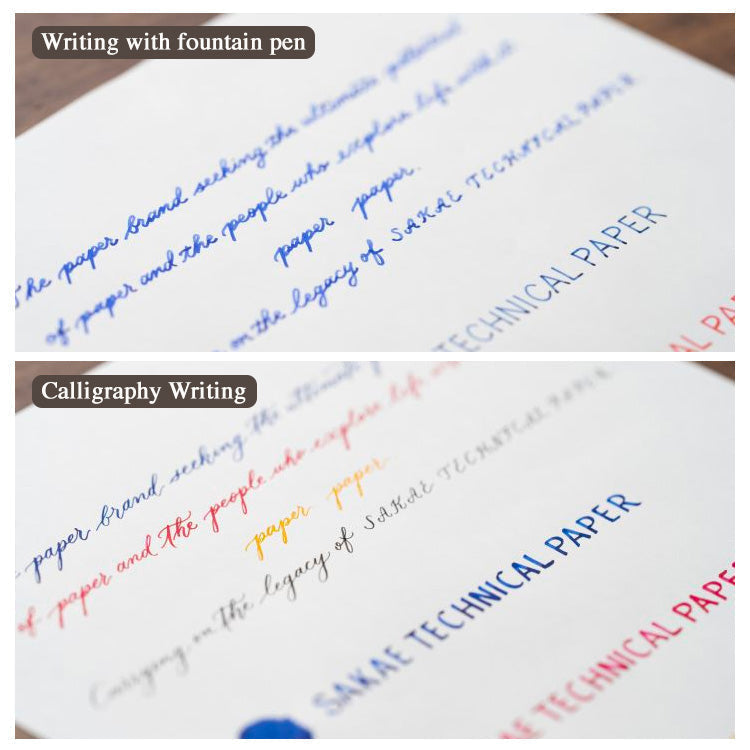 Writing with fountain pen
The paper brand seeking the ultimate potential
of paper and the people who explore life with it
paper paper.
on the legacy of SAKAE TECHNICAL PAPER
TECHNICAL PAPER
AL PA
Calligraphy Writing
paper brand seeking the ultimate
of paper and The people who explore life
paper paper
Carrying on The legacy of SAKAE TECHNICAL PAPER
SAKAE TECHNICAL PAPER
AE TECHNICAL PAPE